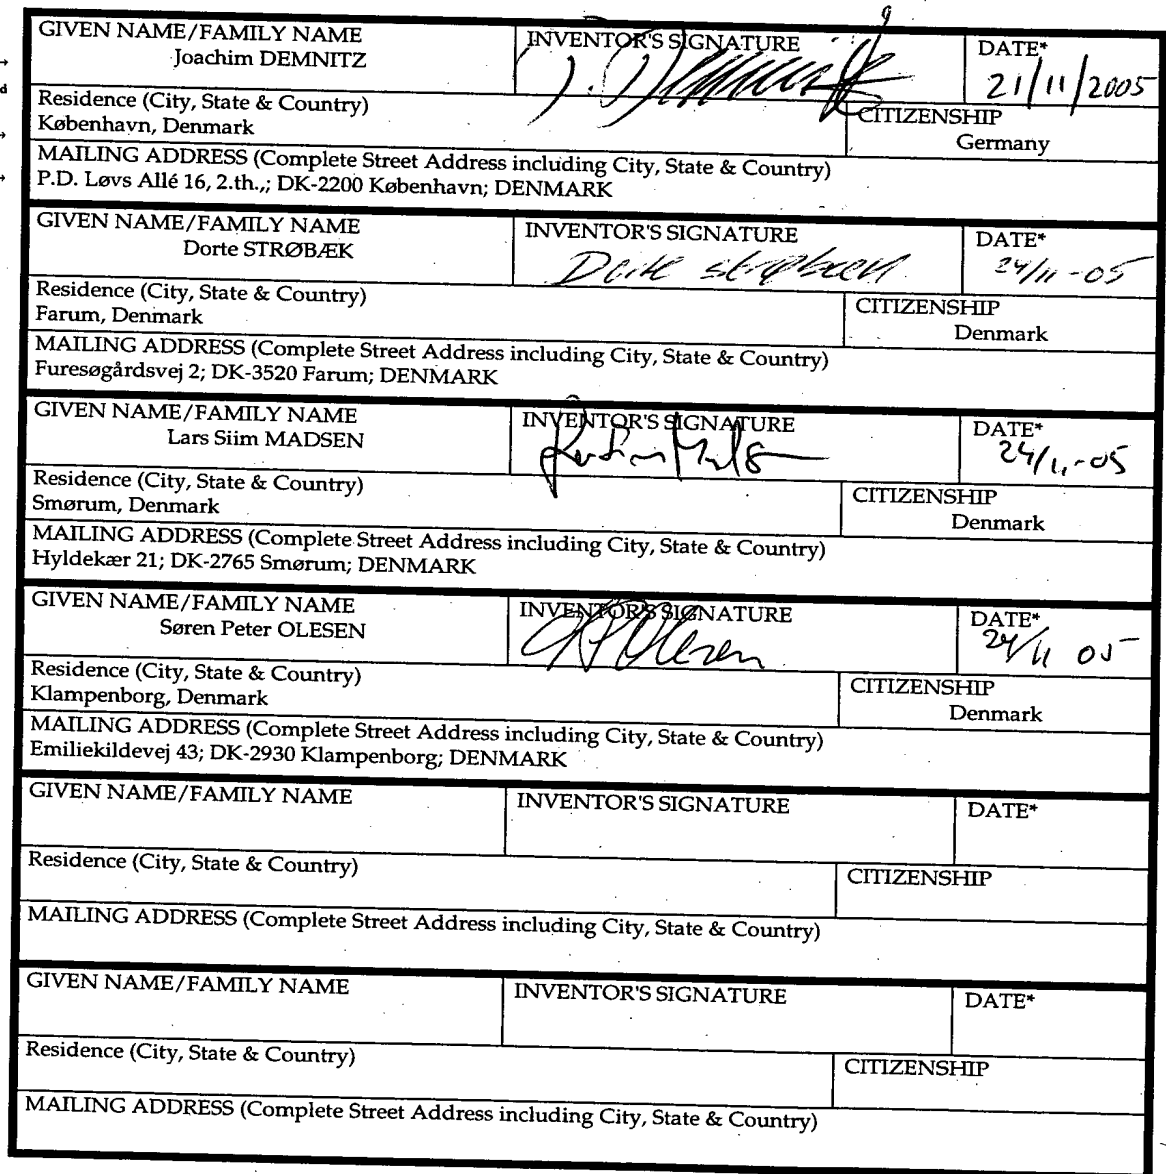 GIVEN NAME/FAMILY NAME INVENTOR'S SIGNATURE DATE*
Joachim DEMNITZ 21/11/2005
Residence (City, State & Country) CITIZENSHIP
København, Denmark Germany
MAILING ADDRESS (Complete Street Address including City, State & Country)
P.D. Løvs Allé 16, 2.th.,; DK-2200 København; DENMARK
GIVEN NAME/FAMILY NAME INVENTOR'S SIGNATURE DATE*
Dorte STRØBÆK Dorte Strøbæk 24/11-05
Residence (City, State & Country) CITIZENSHIP
Farum, Denmark Denmark
MAILING ADDRESS (Complete Street Address including City, State & Country)
Furesøgårdsvej 2; DK-3520 Farum; DENMARK
GIVEN NAME/FAMILY NAME INVENTOR'S SIGNATURE DATE*
Lars Siim MADSEN 24/11-05
Residence (City, State & Country) CITIZENSHIP
Smørum, Denmark Denmark
MAILING ADDRESS (Complete Street Address including City, State & Country)
Hyldekær 21; DK-2765 Smørum; DENMARK
GIVEN NAME/FAMILY NAME INVENTOR'S SIGNATURE DATE*
Søren Peter OLESEN Olesen 24/11 05
Residence (City, State & Country) CITIZENSHIP
Klampenborg, Denmark Denmark
MAILING ADDRESS (Complete Street Address including City, State & Country)
Emiliekildevej 43; DK-2930 Klampenborg; DENMARK
GIVEN NAME/FAMILY NAME INVENTOR'S SIGNATURE DATE*
Residence (City, State & Country) CITIZENSHIP
MAILING ADDRESS (Complete Street Address including City, State & Country)
GIVEN NAME/FAMILY NAME INVENTOR'S SIGNATURE DATE*
Residence (City, State & Country) CITIZENSHIP
MAILING ADDRESS (Complete Street Address including City, State & Country)